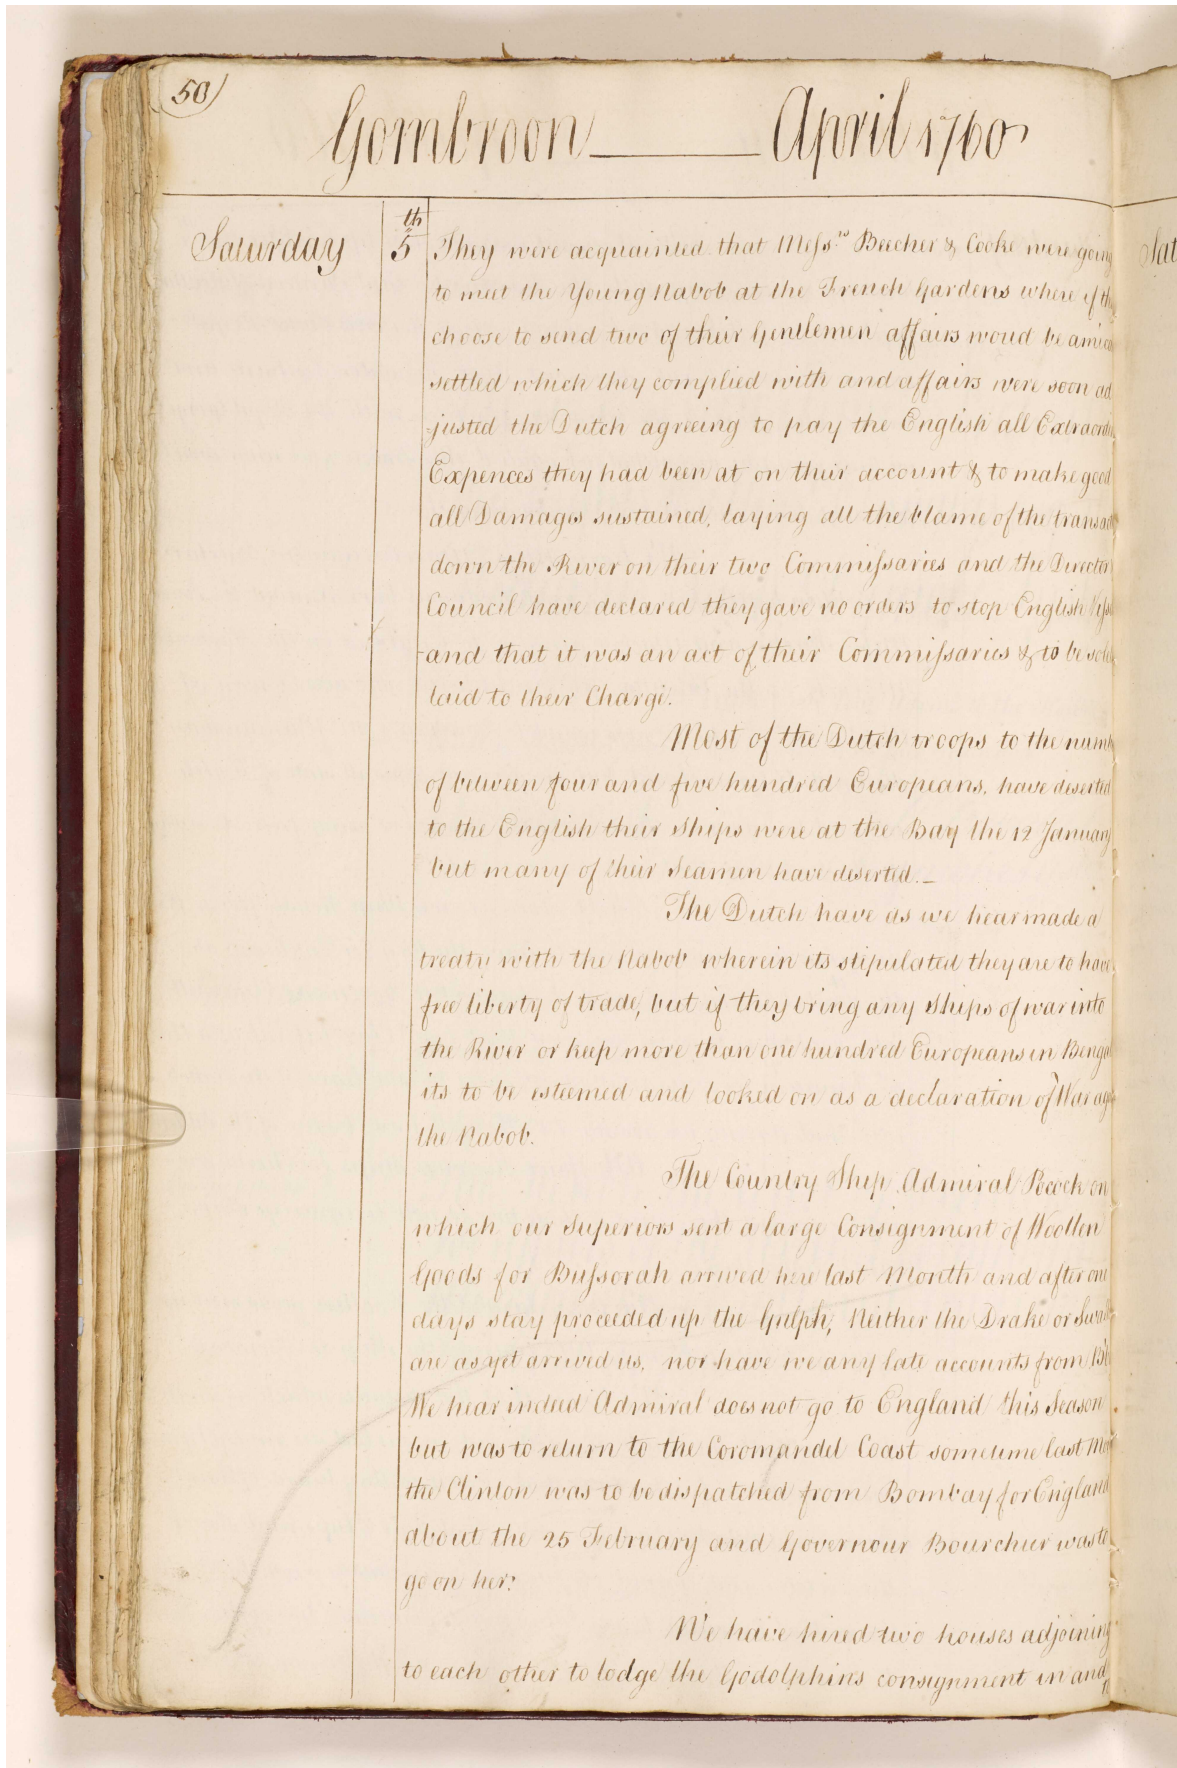 50)
Gombroon — April 1760
Saturday 5th They were acquainted that Messrs Beecher & Cooke were going
to meet the Young Nabob at the French Gardens where if
choose to send two of their Gentlemen affairs woud be
settled which they complied with and affairs were soon ad
justed the Dutch agreeing to pay the English all
Expences they had been at on their account & to make good
all Damages sustained, laying all the blame of the
down the River on their two Commissaries and the Director
Council have declared they gave no orders to stop English
and that it was an act of their Commissaries & to be
laid to their Charge.
Most of the Dutch troops to the
of between four and five hundred Europeans. have deserted
to the English their Ships were at the Bay the 12 January
but many of their Seamen have deserted. —
The Dutch have as we hear made a
treaty with the Nabob wherein its stipulated they are to have
free liberty of trade, but if they bring any Ships of war into
the River or keep more than one hundred Europeans in
its to be esteemed and looked on as a declaration of War
the Nabob.
The Country Ship Admiral Pocock on
which our Superiors sent a large Consignment of Woollen
Goods for Bussorah arrived here last Month and after one
days stay proceeded up the Gulph, Neither the Drake or
are as yet arrived us. nor have we any late accounts from
We hear indeed Admiral does not go to England this Season
but was to return to the Coromandel Coast sometime last
the Clinton was to be dispatched from Bombay for England
about the 25 February and Governour Bourchier was to
go on her.
We have hired two houses adjoining
to each other to lodge the Godolphins consignment in and
Sat